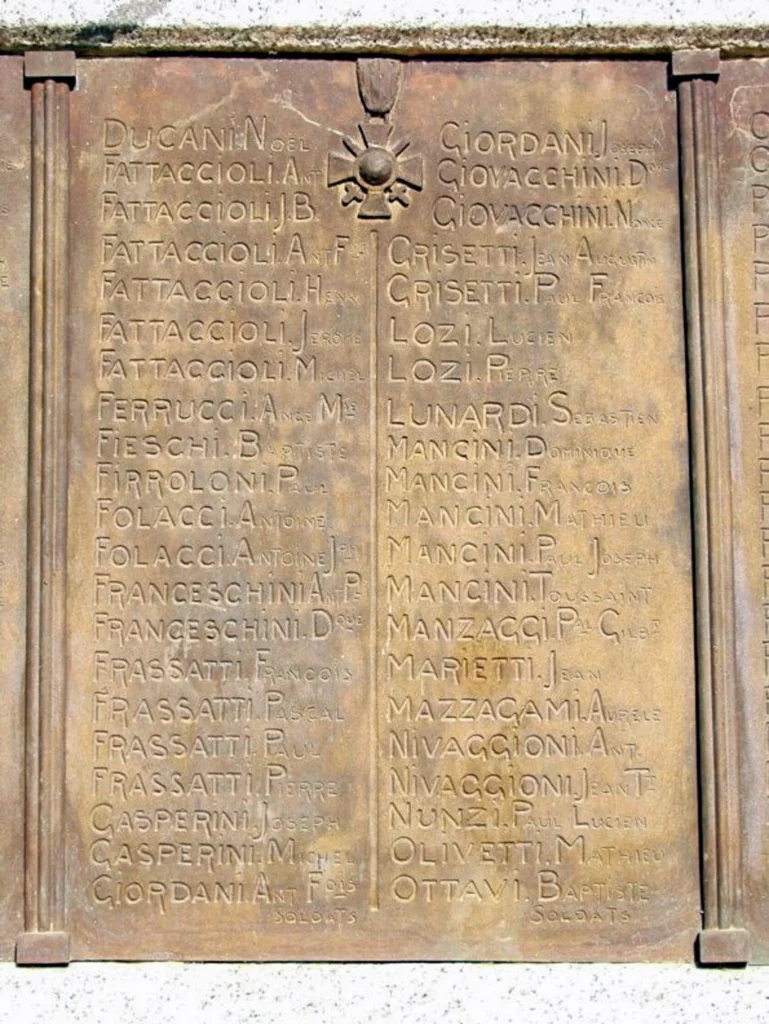 DUCANI. NOEL
FATTACCIOLI. ANT
FATTACCIOLI. J. B.
FATTACCIOLI. ANT F
FATTACCIOLI. HENRI
FATTACCIOLI. JEROME
FATTACCIOLI. MICHEL
FERRUCCI. ANGE MIE
FIESCHI. BAPTISTE
FIRROLONI. PAUL
FOLACCI. ANTOINE
FOLACCI. ANTOINE JPH
FRANCESCHINI ANT P
FRANCESCHINI. DQUE
FRASSATTI. FRANCOIS
FRASSATTI. PASCAL
FRASSATTI. PAUL
FRASSATTI. PIERRE
GASPERINI. JOSEPH
GASPERINI. MICHEL
GIORDANI. ANT FOIS
SOLDATS
GIORDANI. JOSEPH
GIOVACCHINI. DQUE
GIOVACCHINI. NONCE
GRISETTI. JEAN AUGUSTIN
GRISETTI. PAUL FRANCOIS
LOZI. LUCIEN
LOZI. PIERRE
LUNARDI. SEBASTIEN
MANCINI. DOMINIQUE
MANCINI. FRANCOIS
MANCINI. MATHIEU
MANCINI. PAUL JOSEPH
MANCINI. TOUSSAINT
MANZAGGI. PAL GILBT
MARIETTI. JEAN
MAZZAGAMI. AURELE
NIVAGGIONI. ANT.
NIVAGGIONI. JEAN TT
NUNZI. PAUL LUCIEN
OLIVETTI. MATHIEU
OTTAVI. BAPTISTE
SOLDATS